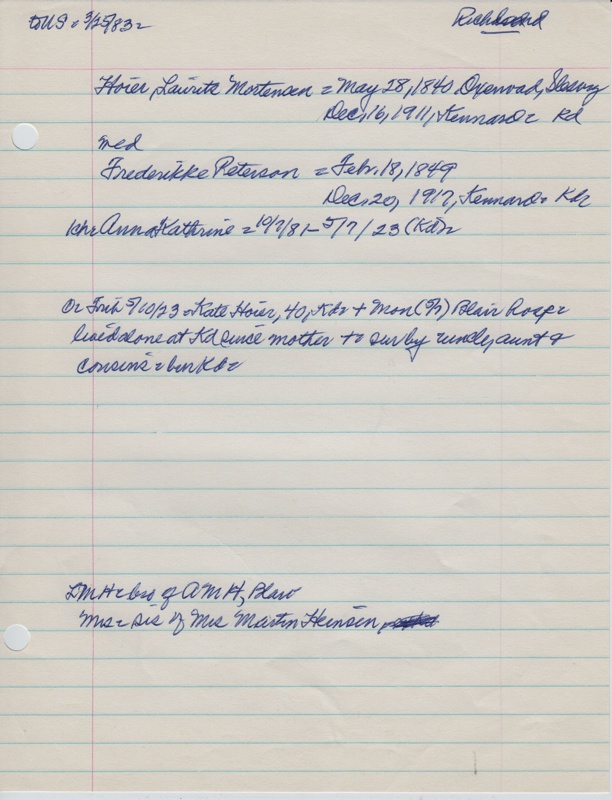 to US = 3/25/83 =
Hoier, Laurits Mortensen = May 28, 1840 Oxenvad, Slesvig
Dec, 16, 1911, Kennard = Kd
med
Frederikke Peterson = Feb. 18, 1849
Dec. 20, 1917, Kennard = Kdr
Anna Kathrine = 10/7/81 - 5/7/23 (Kd)=
5/10/23 = Kate Hoier, 40, Kd = + Mon (5/7) Blair hosp =
lived alone at Kd since mother + = sur by uncle, aunt &
cousins = bur Kd =
LMH = bro of AMH, Blair
Mrs = sis of Mrs Martin Heinsen,